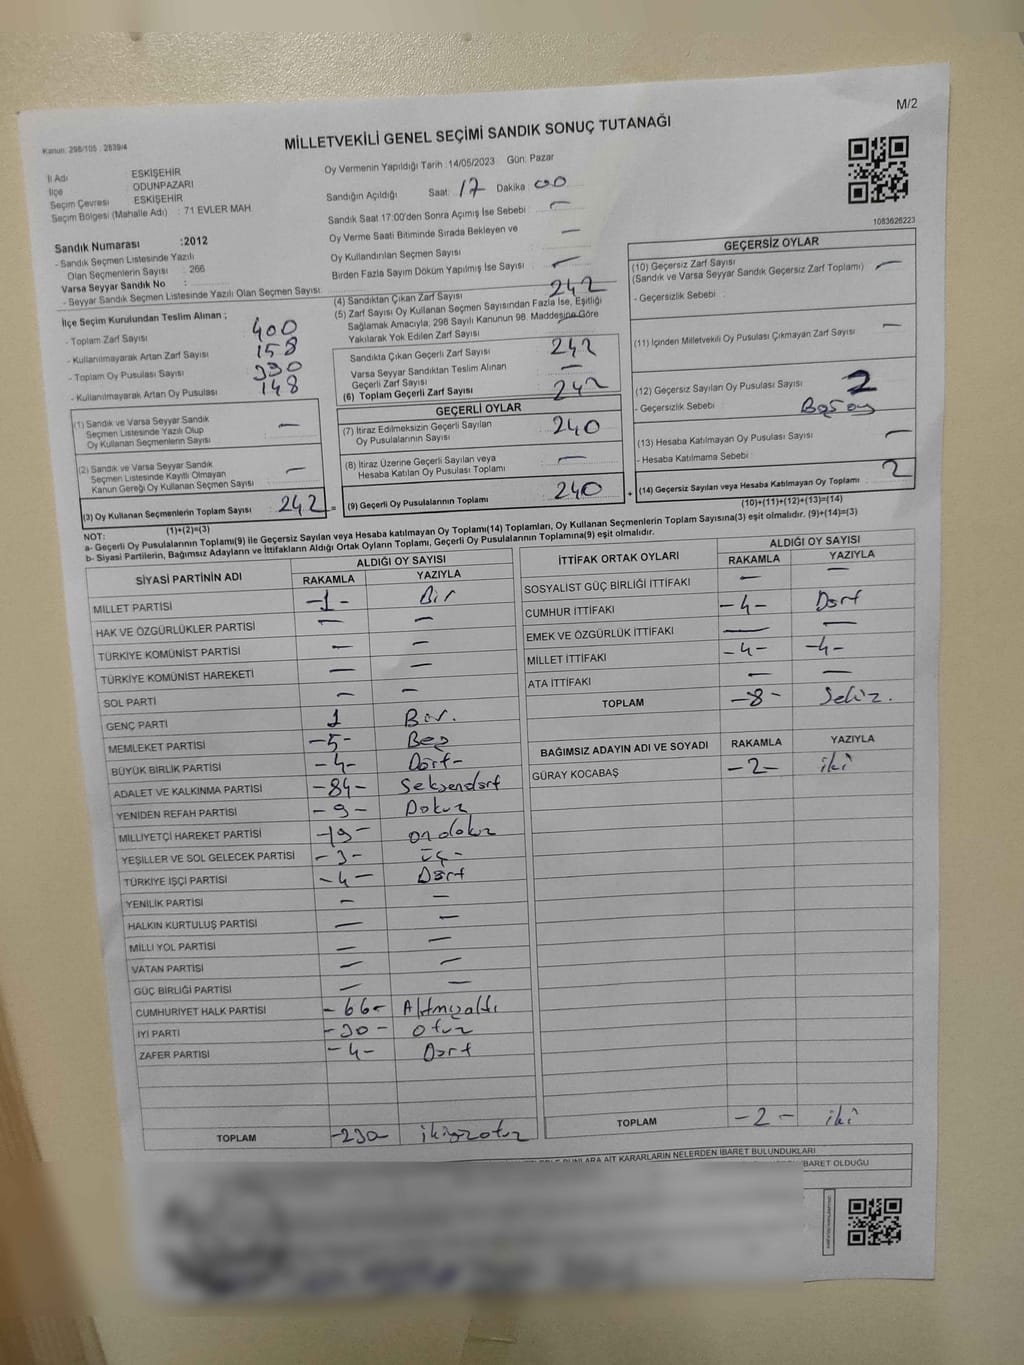 M/2
Kanun: 298/105 : 2839/4
MİLLETVEKİLİ GENEL SEÇİMİ SANDIK SONUÇ TUTANAĞI
1083626223
İl Adı : ESKİŞEHİR
İlçe : ODUNPAZARI
Seçim Çevresi : ESKİŞEHİR
Seçim Bölgesi (Mahalle Adı) : 71 EVLER MAH
Sandık Numarası :2012
- Sandık Seçmen Listesinde Yazılı
Olan Seçmenlerin Sayısı : 266
Varsa Seyyar Sandık No :
- Seyyar Sandık Seçmen Listesinde Yazılı Olan Seçmen Sayısı:
Oy Vermenin Yapıldığı Tarih :14/05/2023 Gün: Pazar
Sandığın Açıldığı Saat: 17 Dakika: 00
Sandık Saat 17:00'den Sonra Açılmış İse Sebebi : —
Oy Verme Saati Bitiminde Sırada Bekleyen ve
Oy Kullandırılan Seçmen Sayısı : —
Birden Fazla Sayım Döküm Yapılmış İse Sayısı : —
İlçe Seçim Kurulundan Teslim Alınan ;
- Toplam Zarf Sayısı : 400
- Kullanılmayarak Artan Zarf Sayısı : 158
- Toplam Oy Pusulası Sayısı : 390
- Kullanılmayarak Artan Oy Pusulası : 148
(1) Sandık ve Varsa Seyyar Sandık
Seçmen Listesinde Yazılı Olup
Oy Kullanan Seçmenlerin Sayısı : —
(2) Sandık ve Varsa Seyyar Sandık
Seçmen Listesinde Kayıtlı Olmayan
Kanun Gereği Oy Kullanan Seçmen Sayısı : —
(3) Oy Kullanan Seçmenlerin Toplam Sayısı : 242
(1)+(2)=(3)
(4) Sandıktan Çıkan Zarf Sayısı : 242
(5) Zarf Sayısı Oy Kullanan Seçmen Sayısından Fazla İse, Eşitliği
Sağlamak Amacıyla, 298 Sayılı Kanunun 98. Maddesine Göre
Yakılarak Yok Edilen Zarf Sayısı : —
Sandıkta Çıkan Geçerli Zarf Sayısı : 242
Varsa Seyyar Sandıktan Teslim Alınan
Geçerli Zarf Sayısı : —
(6) Toplam Geçerli Zarf Sayısı : 242
GEÇERLİ OYLAR
(7) İtiraz Edilmeksizin Geçerli Sayılan
Oy Pusulalarının Sayısı : 240
(8) İtiraz Üzerine Geçerli Sayılan veya
Hesaba Katılan Oy Pusulası Toplamı : —
(9) Geçerli Oy Pusulalarının Toplamı : 240
GEÇERSİZ OYLAR
(10) Geçersiz Zarf Sayısı
(Sandık ve Varsa Seyyar Sandık Geçersiz Zarf Toplamı) : —
- Geçersizlik Sebebi :
(11) İçinden Milletvekili Oy Pusulası Çıkmayan Zarf Sayısı : —
(12) Geçersiz Sayılan Oy Pusulası Sayısı : 2
- Geçersizlik Sebebi : Boş oy
(13) Hesaba Katılmayan Oy Pusulası Sayısı : —
- Hesaba Katılmama Sebebi :
(14) Geçersiz Sayılan veya Hesaba Katılmayan Oy Toplamı : 2
(10)+(11)+(12)+(13)=(14)
NOT:
a- Geçerli Oy Pusulalarının Toplamı(9) ile Geçersiz Sayılan veya Hesaba katılmayan Oy Toplamı(14) Toplamları, Oy Kullanan Seçmenlerin Toplam Sayısına(3) eşit olmalıdır. (9)+(14)=(3)
b- Siyasi Partilerin, Bağımsız Adayların ve İttifakların Aldığı Ortak Oyların Toplamı, Geçerli Oy Pusulalarının Toplamına(9) eşit olmalıdır.
SİYASİ PARTİNİN ADI ALDIĞI OY SAYISI
RAKAMLA YAZIYLA
MİLLET PARTİSİ -1- Bir
HAK VE ÖZGÜRLÜKLER PARTİSİ — —
TÜRKİYE KOMÜNİST PARTİSİ — —
TÜRKİYE KOMÜNİST HAREKETİ — —
SOL PARTİ — —
GENÇ PARTİ 1 Bir.
MEMLEKET PARTİSİ -5- Beş
BÜYÜK BİRLİK PARTİSİ -4- Dört-
ADALET VE KALKINMA PARTİSİ -84- Seksendört
YENİDEN REFAH PARTİSİ -9- Dokuz
MİLLİYETÇİ HAREKET PARTİSİ -19- ondokuz
YEŞİLLER VE SOL GELECEK PARTİSİ -3- üç-
TÜRKİYE İŞÇİ PARTİSİ -4- Dört
YENİLİK PARTİSİ — —
HALKIN KURTULUŞ PARTİSİ — —
MİLLİ YOL PARTİSİ — —
VATAN PARTİSİ — —
GÜÇ BİRLİĞİ PARTİSİ — —
CUMHURİYET HALK PARTİSİ -66- Altmışaltı
İYİ PARTİ -30- otuz
ZAFER PARTİSİ -4- Dört
TOPLAM -230- ikiyüzotuz
İTTİFAK ORTAK OYLARI ALDIĞI OY SAYISI
RAKAMLA YAZIYLA
SOSYALİST GÜÇ BİRLİĞİ İTTİFAKI — —
CUMHUR İTTİFAKI -4- Dört
EMEK VE ÖZGÜRLÜK İTTİFAKI — —
MİLLET İTTİFAKI -4- -4-
ATA İTTİFAKI — —
TOPLAM -8- Sekiz.
BAĞIMSIZ ADAYIN ADI VE SOYADI RAKAMLA YAZIYLA
GÜRAY KOCABAŞ -2- iki
TOPLAM -2- iki
BUNLARA AİT KARARLARIN NELERDEN İBARET BULUNDUKLARI
İBARET OLDUĞU